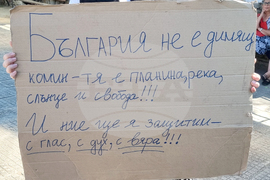 БЪЛГАРИЯ НЕ Е ДИМЯЩ
КОМИН - ТЯ Е ПЛАНИНА, РЕКА,
СЛЪНЦЕ И СВОБОДА!!!
И НИЕ ЩЕ Я ЗАЩИТИМ -
С ГЛАС, С ДУХ, С ВЯРА!!!